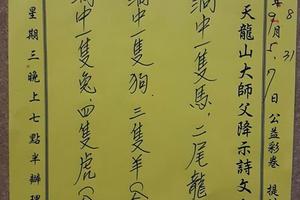 8
31
9月5.7日公益彩卷 提
天龍山大師父降示詩文
中一隻馬.二尾龍
中一隻狗.三隻羊(
中一隻兔.四隻虎(
星期三晚上七點半辦理